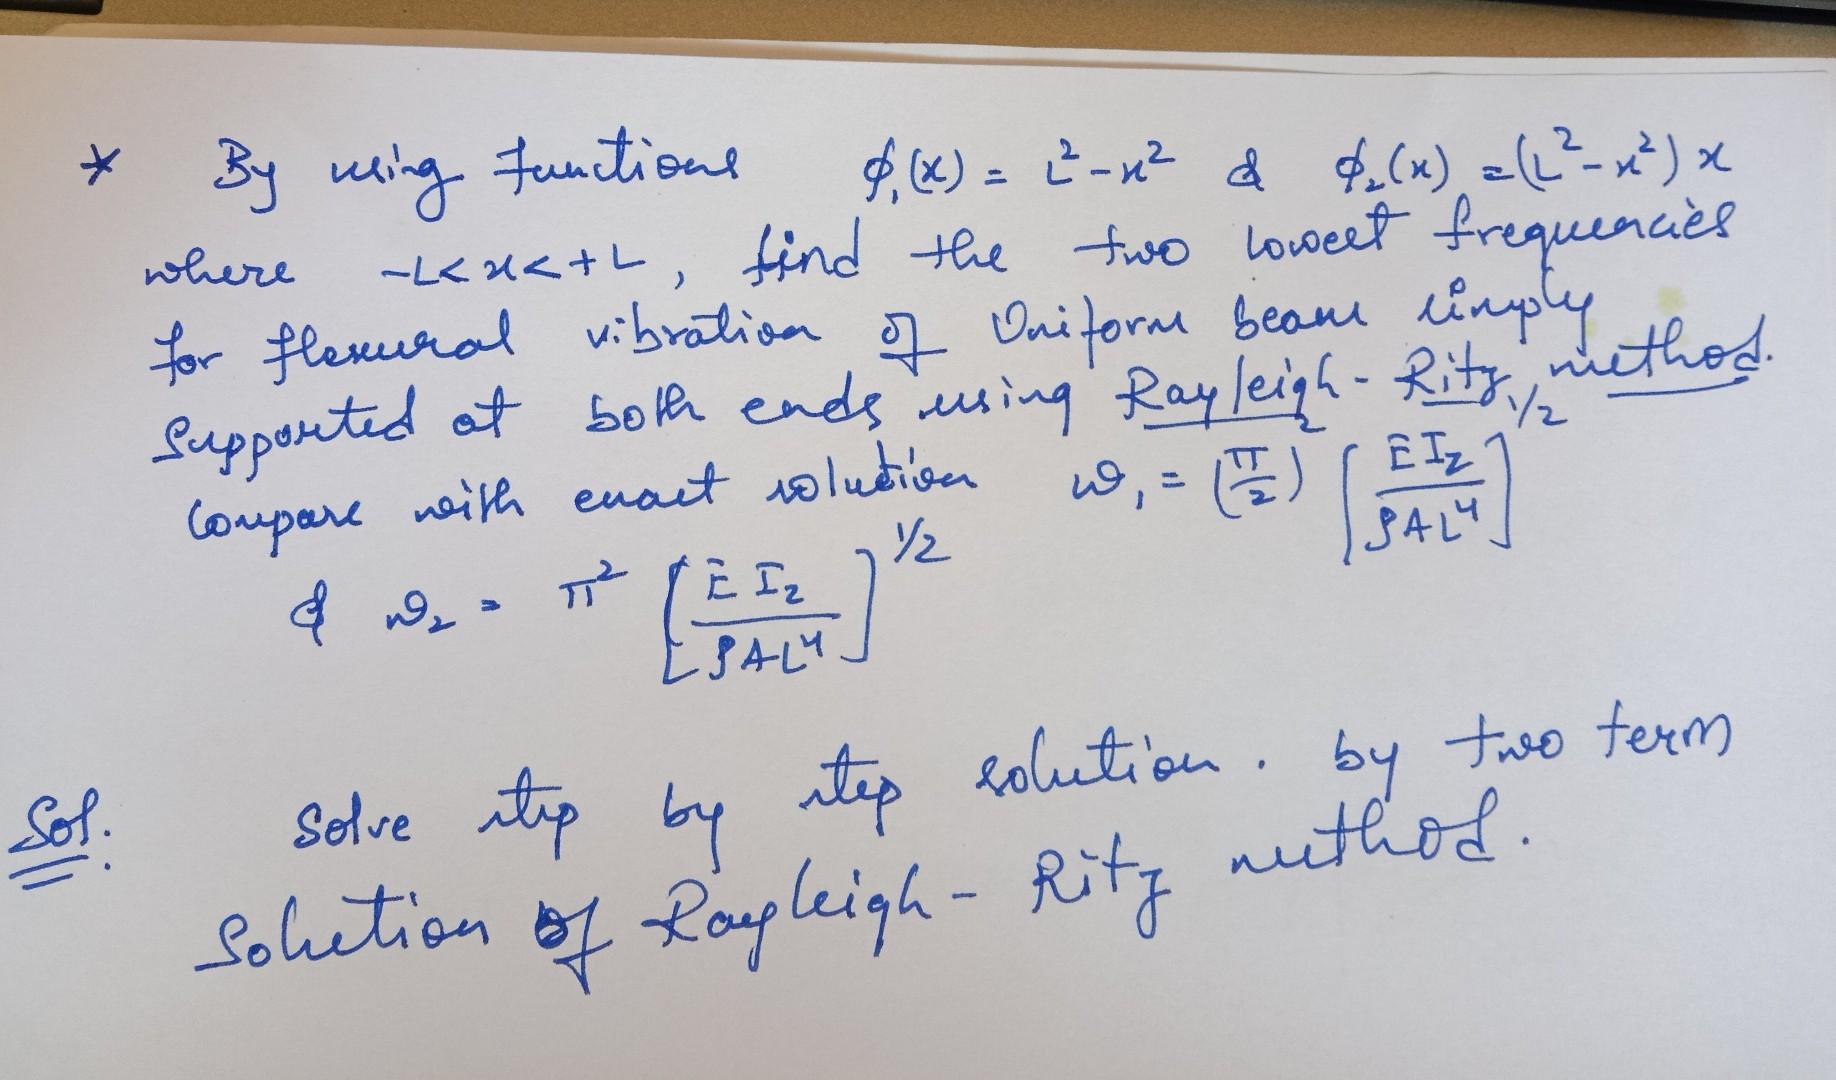 * By using functions ϕ₁(x) = L² - x² & ϕ₂(x) = (L² - x²) x
where -L < x < +L, find the two lowest frequencies
for flexural vibration of Uniform beam simply
Supported at both ends using Rayleigh - Ritz method.
Compare with exact solution ω₁ = (π/2)² [E I_z / ρAL⁴]^1/2
& ω₂ = π² [E I_z / ρAL⁴]^1/2
Sol. Solve step by step solution. by two term
Solution of Rayleigh - Ritz method.